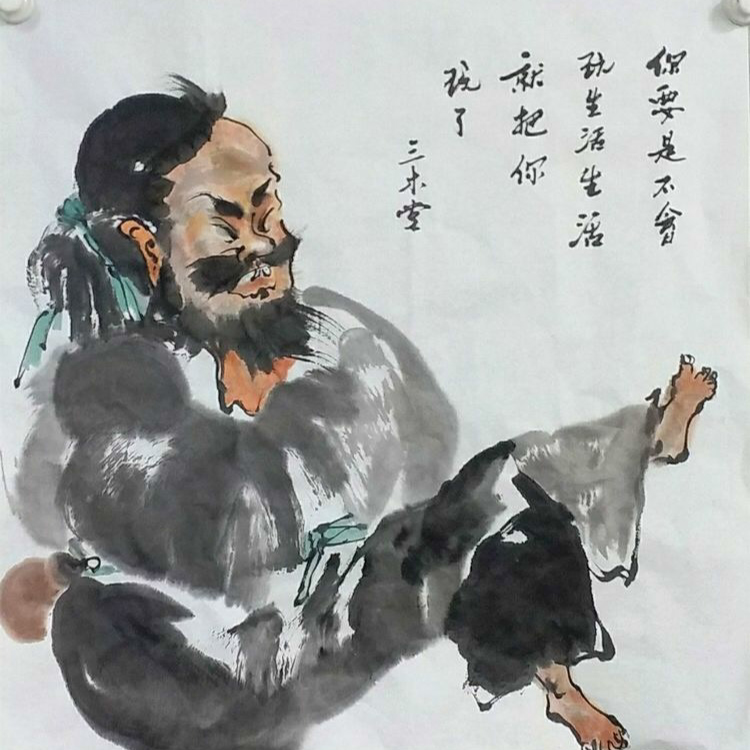 你要是不會
玩生活生活
就把你
玩了
三木堂